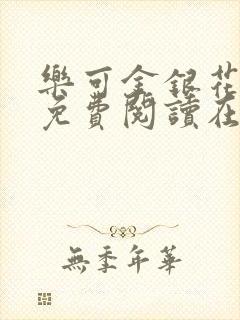 樂可金銀花
免費閱讀在
無季年華